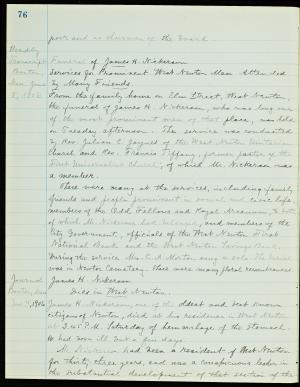 76
poor and as chairman of the board.
Weekly
Transcript
Boston
Funeral of James H. Nickerson
Services for Prominent West Newton Man Attended
by Many Friends.
From the family home on Elm Street, West Newton,
the funeral of James H. Nickerson, who was long one
of the most prominent men of that place, was held
on Tuesday afternoon. The service was conducted
by Rev. Julian C. Jaynes of the West Newton Unitarian
Church and Rev. Francis Tiffany, former pastor of the
First Unitarian Church, of which Mr. Nickerson was
a member.
There were many at the services, including family
friends and people prominent in social and civic life,
members of the Odd Fellows and Royal Arcanum, to both
of which Mr. Nickerson had belonged, and members of the
City Government, officials of the West Newton First
National Bank and the West Newton Savings Bank.
During the service Mrs. Morton sang a solo. The burial
was in Newton Cemetery. There were many floral remembrances.
Journal
James H. Nickerson
Dies in West Newton
James H. Nickerson, one of the oldest and best known
citizens of Newton, died at his residence in West Newton
at 3.45 P.M. Saturday of hemorrhage of the stomach.
He had been ill but a few days.
Mr. Nickerson had been a resident of West Newton
for thirty three years, and was a conspicuous leader in
the substantial development of that section of the